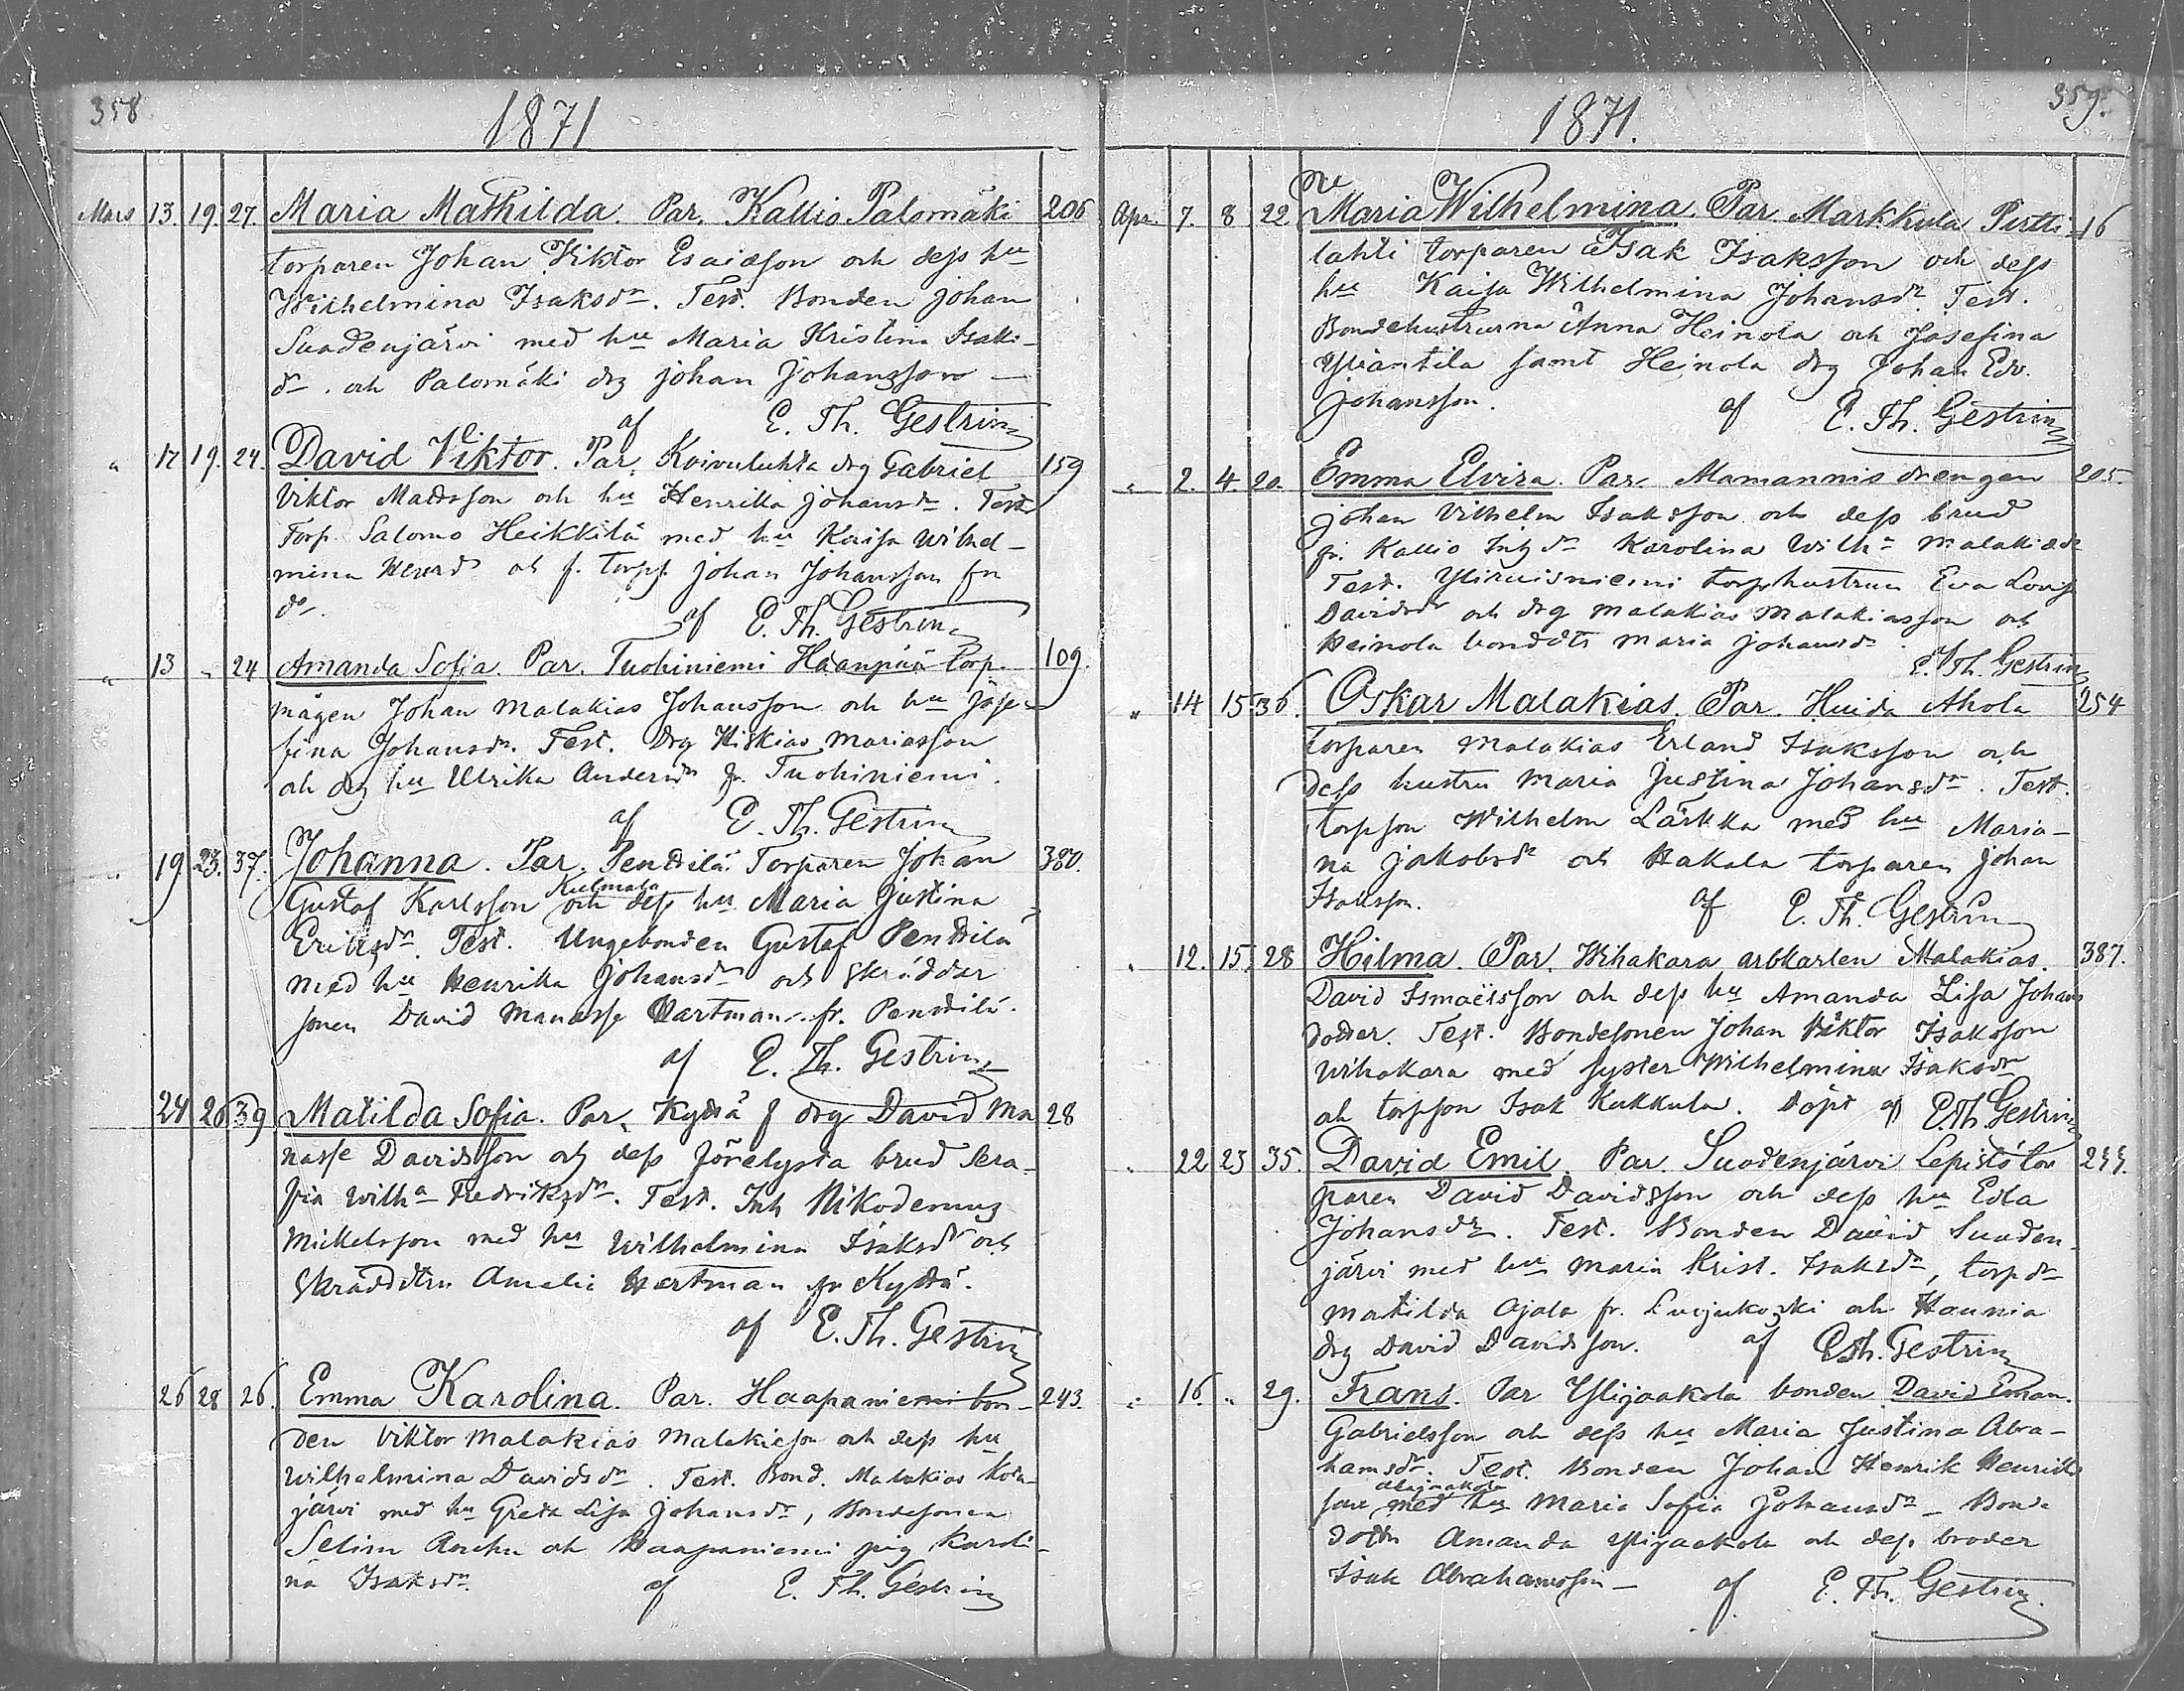 358
1871
Mars 13. 19. 27. Maria Mathilda. Par. Kallio Palomäki 206
torparen Johan Viktor Esaiasson och dess hu
Wilhelmina Isaksdr. Test. Bonden Johan
Suodenjärvi med hu Maria Kristina Isaks-
dr. och Palomäki drg Johan Johansson —
af E. Th. Gestrin
" 17 19. 24. David Viktor. Par. Koivuluhta drg Gabriel 159
Viktor Madsson och hu Henrika Johansdr. Test
Torp. Salomo Heikkilä med hu Kaisa Wilhel-
mina Henrd och f. torp. Johan Johansson fr
do.
af E. Th. Gestrin
" 13 " 24 Amanda Sofia. Par. Tuohiniemi Haanpää torp. 109.
mågen Johan Malakias Johansson och hu Jose-
fina Johansdr. Test. Drg Hiskias Mariasson
och drg hu Ulrika Andersdr fr. Tuohiniemi.
af E. Th. Gestrin
" 19 23. 37. Johanna. Par. Penttilä Torparen Johan 380.
Kulmala
Gustaf Karlsson och dess hu Maria Justina
Eriksdr. Test. Ungebonden Gustaf Penttilä
med hu Henrika Johansdr och Skräddar
sonen David Manasse Hartman fr. Penttilä.
af E. Th. Gestrin
24 26 39 Matilda Sofia. Par. Kyttä f drg David Ma 28
nasse Davidsson och dess förelysta brud Sera-
fia Wilha Fredriksdr. Test. Inh Nikodemus
Mickelsson med hu Wilhelmina Isaksdr och
Skräddtru Amalie Hartman fr Kyttä.
af E. Th. Gestrin
26 28 26. Emma Karolina. Par. Haapaniemi bon- 243.
den Viktor Malakias Malakiass och dess hu
Wilhelmina Davidsdr. Test. Bond. Malakias
järvi med hu Greta Lisa Johansdr, Bondesonen
Selim och Haapaniemi pig Karoli-
na Isaksdr.
af E. Th. Gestrin
359.
1871.
Apr. 7. 8 22 Maria Wilhelmina. Par. Markkula Pirtti- 16
lahti torparen Isak Isaksson och dess
hu Kaisa Wilhelmina Johansdr. Test.
Bondehustrurna Anna Heinola och Josefina
Yliantila samt Heinola drg Johan Edv.
Johansson.
af E. Th. Gestrin
" 2. 4. 20. Emma Elvira. Par. Mamannis drengen 205.
Johan Vilhelm Isaksson och dess brud
fr. Kallio Inh dr Karolina Wilha Malakiasdr
Test. torphustrun Eva Lovis
Davidsdr och drg Malakias Malakiasson och
Heinola bonddtr Maria Johansdr.
E. Th. Gestrin
" 14 15 36. Oskar Malakias. Par. Huida Ahola 254
torparen Malakias Erland Isaksson och
dess hustru Maria Justina Johansdr. Test.
torpson Wilhelm Lärkka med hu Maria-
na Jakobsdr och Hakala torparen Johan
Isaksson.
af E. Th. Gestrin
" 12. 15. 28 Hilma. Par. Wihakara arbkarlen Malakias 387.
David Ismaëlsson och dess hu Amanda Lisa Johans
dotter. Test. Bondesonen Johan Viktor Isaksson
Wihakara med syster Wilhelmina Isaksdr
och torpson Isak Kukkula. Döpt af E. Th. Gestrin
" 22 23 35. David Emil. Par. Suodenjärvi Lepistö tor 255.
paren David Davidsson och dess hu Edla
Johansdr. Test. Bonden David Suoden-
järvi med hu Maria Krist. Isaksdr, torpdr
Matilda Ojala fr. Luojukoski och Haunia
drg David Davidsson. af E. Th. Gestrin
" 16. " 29. Frans. Par Ylijaakola bonden David Eman.
Gabrielsson och dess hu Maria Justina Abra-
hamsdr. Test. Bonden Johan Henrik Henriks
Alajaakola
son med hu Maria Sofia Johansdr – Bond
dottr Amanda Ylijaakola och dess broder
Isak Abrahamsson — af E. Th. Gestrin.